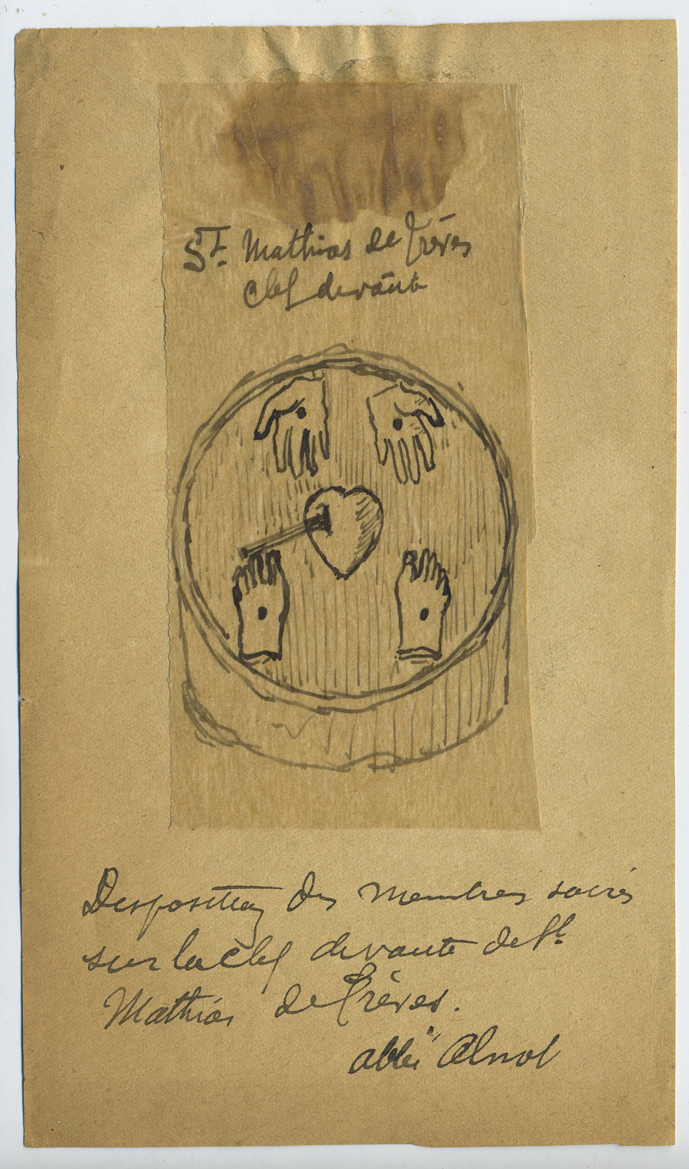 St Mathias de Trèves
clef de voûte
Disposition des membres sacrés
sur la clef de voûte de St
Mathias de Trèves.
abbé